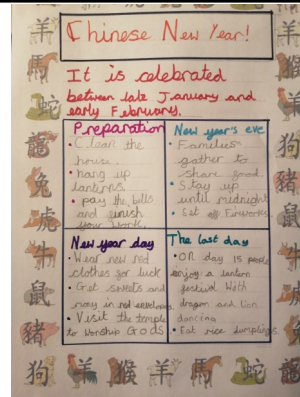 Chinese New Year!
It is celebrated
between late January and
early February.
Preparation
• Clean the
house.
• hang up
lanterns.
• pay the bills
and finish
your work.
New year's eve
• Families
gather to
share good.
• Stay up
until midnight
• Set Fireworks.
New year day
• Wear new red
clothes for luck
• Get sweets and
mony in red envelopes
• Visit the temple
to worship Gods
The last day
• on day 15 people
enjoy a lantern
festival With
dragon and lion
dancing
• Eat rice dumplings
羊
馬
蛇
龍
兔
虎
牛
鼠
豬
狗 羊 猴 羊 馬 蛇 龍
羊
猴
狗
豬
鼠
牛